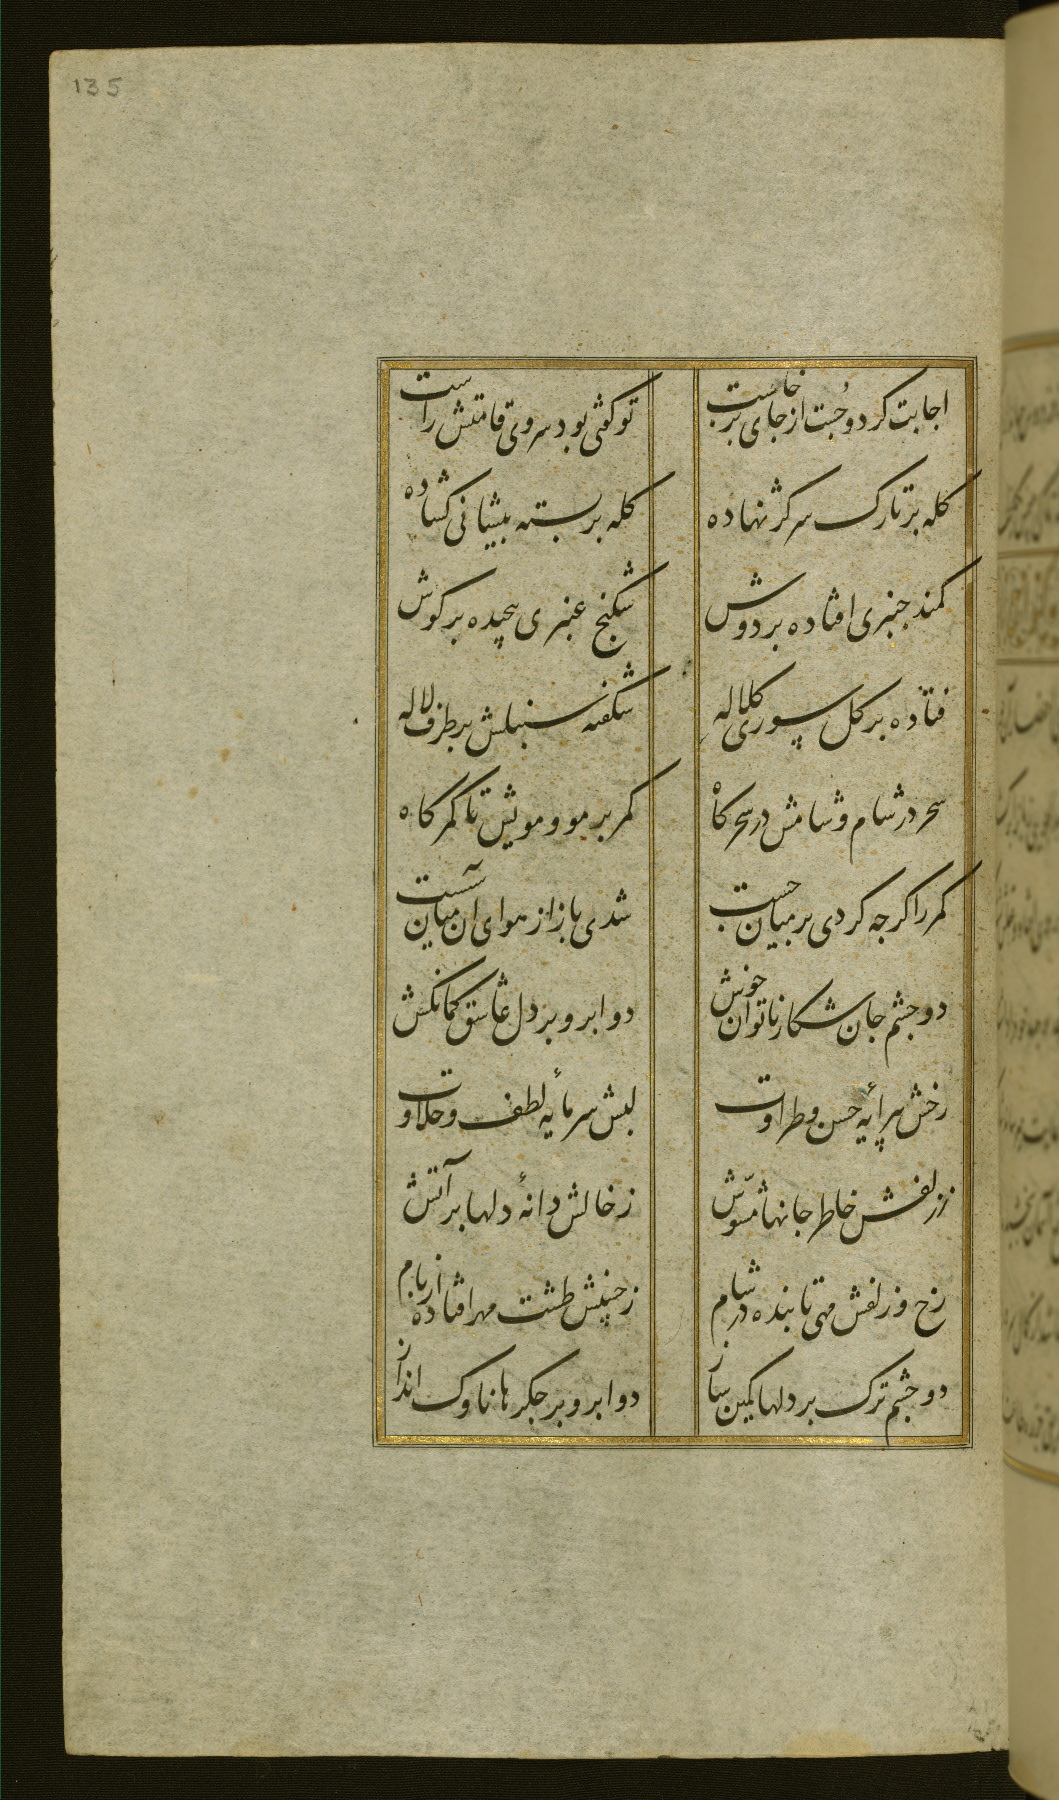 135
اجابت کرد و جست از جای برخاست
تو کفتی بود سروی قامتش راست
کله بر تارک سر کژ نهاده
کله بر بسته پیشانی کشاده
کمند چنبری افتاده بر دوش
شکنج عنبری پیچیده بر کوش
فتاده بر کل سوری کلاله
شکفته سنبلش بر طرف لاله
سحر در شام و شامش در سحرکاه
کمر بر مو و مویش تا کمرکاه
کمر را کرچه کردی بر میان چست
شدی باز از هوای ان میان سست
دو چشم جان شکار ناتوان خوش
دو ابرو بر دل عاشق کمانکش
رخش پیرائهٔ حسن و طراوت
لبش سرمائهٔ لطف و حلاوت
ز زلفش خاطر جانها مشوّش
ز خالش دانهٔ دلها بر آتش
رخ و زلفش مهی تابنده در شام
ز جیبش طشت مهر افتاده از بام
دو چشم ترک بر دلها کمین ساز
دو ابرو بر جکرها ناوک انداز